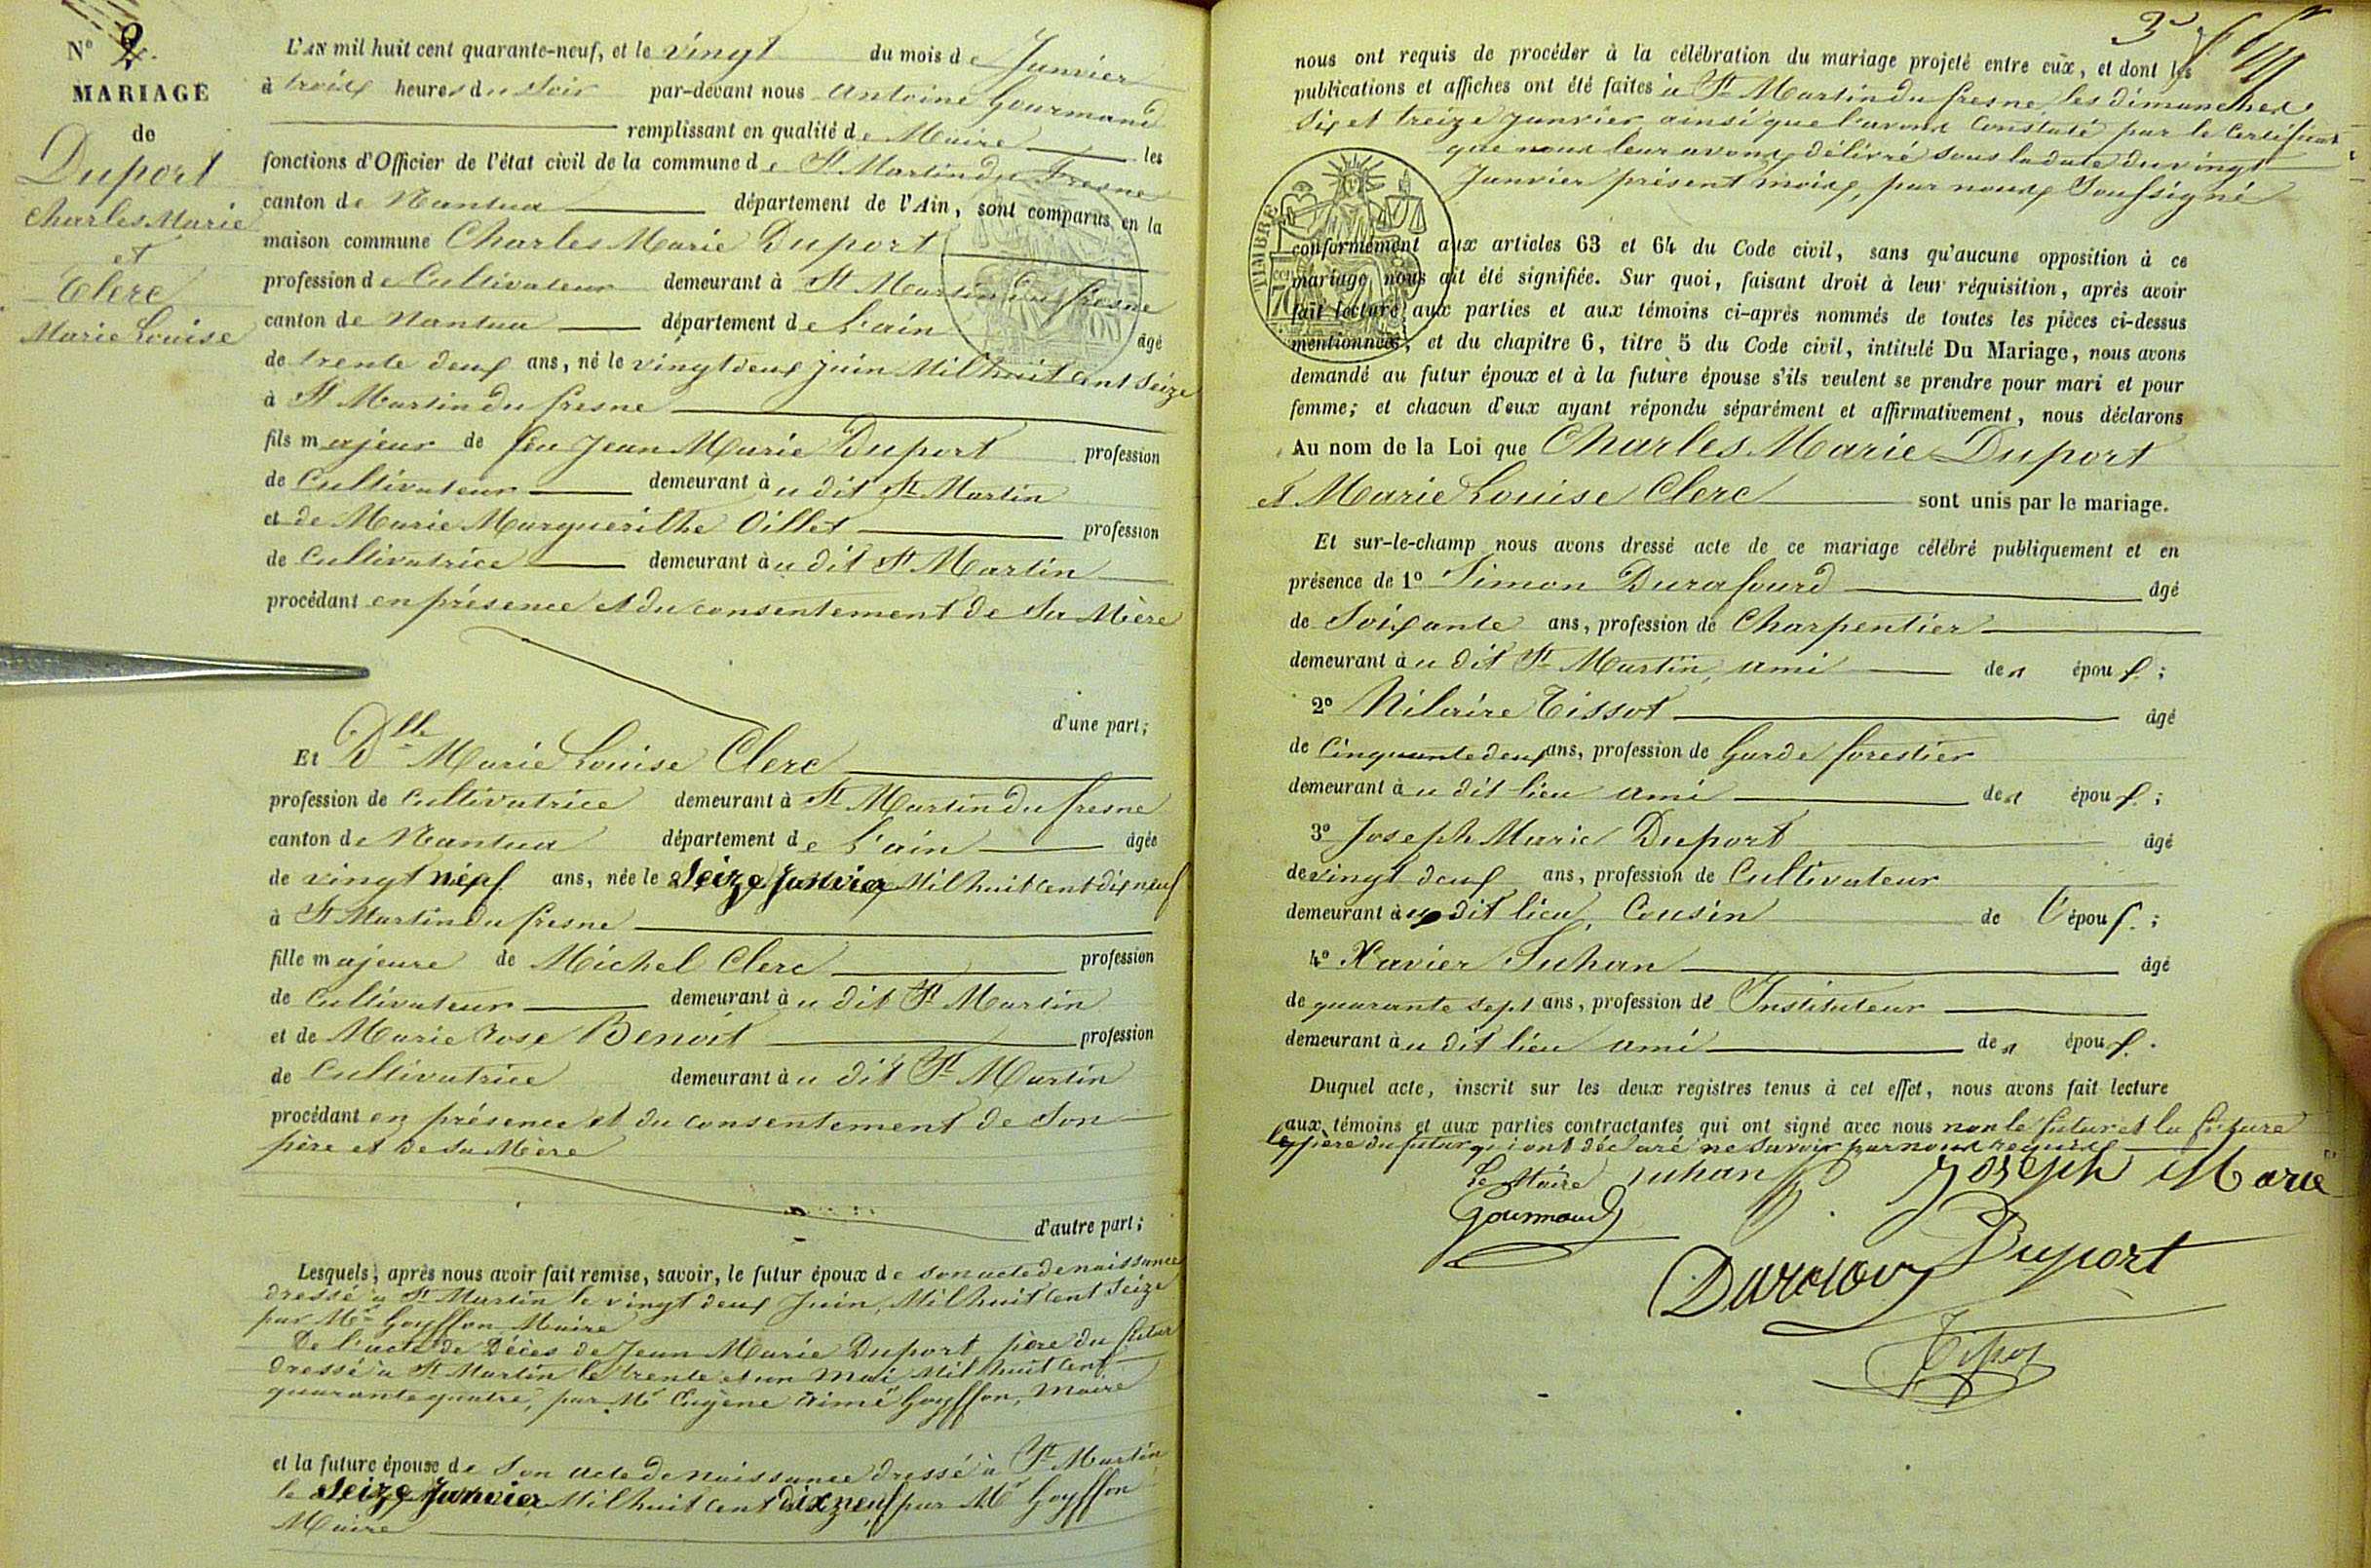 N° 2.
MARIAGE
de
Duport
Charles Marie
et
Clerc
Marie Louise
L'AN mil huit cent quarante-neuf, et le vingt du mois de Janvier
à trois heures du Soir par-devant nous Antoine Gourmand
remplissant en qualité de Maire les
fonctions d'Officier de l'état civil de la commune de St Martin du Fresne
canton de Nantua département de l'Ain, sont comparus en la
maison commune Charles Marie Duport
profession de Cultivateur demeurant à St Martin du fresne
canton de Nantua département de L'ain âgé
de trente deux ans, né le vingt deux Juin Mil huit Cent Seize
à St Martin du fresne
fils majeur de feu Jean Marie Duport profession
de Cultivateur demeurant au dit St Martin
et de Marie Marguerithe Oillet profession
de Cultivatrice demeurant au dit St Martin
procédant en présence et du consentement de Sa Mère
d'une part;
Et Dlle Marie Louise Clerc
profession de Cultivatrice demeurant à St Martin du fresne
canton de Nantua département de L'ain âgée
de vingt neuf ans, née le Seize Janvier Mil huit Cent dix neuf
à St Martin du fresne
fille majeure de Michel Clerc profession
de Cultivateur demeurant au dit St Martin
et de Marie Rose Benoit profession
de Cultivatrice demeurant au dit St Martin
procédant en présence et du consentement de Son
père et de sa Mère
d'autre part;
Lesquels, après nous avoir fait remise, savoir, le futur époux de son acte de naissance
dressé à St Martin le vingt deux Juin, Mil huit Cent Seize
par Mr Goyffon Maire
De l'acte de Décès de Jean Marie Duport père du futur
dressé à St Martin le trente et un Mai Mil huit Cent
quarante quatre, par Mr Eugène Aimé Goyffon, Maire
et la future épouse de Son acte de naissance dressé à St Martin
le Seize Janvier Mil huit Cent dix neuf par Mr Goyffon
Maire
3
nous ont requis de procéder à la célébration du mariage projeté entre eux, et dont les
publications et affiches ont été faites à St Martin du fresne les dimanches
Six et treize Janvier ainsi que l'avons Constaté par le Certificat
que nous leur avons délivré sous la date du vingt
Janvier présent mois, par nous Soussigné
TIMBRE
conformément aux articles 63 et 64 du Code civil, sans qu'aucune opposition à ce
mariage nous ait été signifiée. Sur quoi, faisant droit à leur réquisition, après avoir
fait lecture aux parties et aux témoins ci-après nommés de toutes les pièces ci-dessus
mentionnées, et du chapitre 6, titre 5 du Code civil, intitulé Du Mariage, nous avons
demandé au futur époux et à la future épouse s'ils veulent se prendre pour mari et pour
femme; et chacun d'eux ayant répondu séparément et affirmativement, nous déclarons
Au nom de la Loi que Charles Marie Duport
et Marie Louise Clerc sont unis par le mariage.
Et sur-le-champ nous avons dressé acte de ce mariage célébré publiquement et en
présence de 1° Simon Durafourd âgé
de Soixante ans, profession de Charpentier
demeurant au dit St Martin, ami des époux;
2° Hilaire Tissot âgé
de Cinquante deux ans, profession de Garde forestier
demeurant au dit lieu ami des époux;
3° Joseph Marie Duport âgé
de vingt deux ans, profession de Cultivateur
demeurant au dit lieu, Cousin de l'époux;
4° Xavier Juhan âgé
de quarante sept ans, profession de Instituteur
demeurant au dit lieu ami des époux.
Duquel acte, inscrit sur les deux registres tenus à cet effet, nous avons fait lecture
aux témoins et aux parties contractantes qui ont signé avec nous non le futur et la future
père du futur qui ont déclaré ne savoir par nous requis
Le Maire Juhan Joseph Marie
Gourmand Duport
Tissot